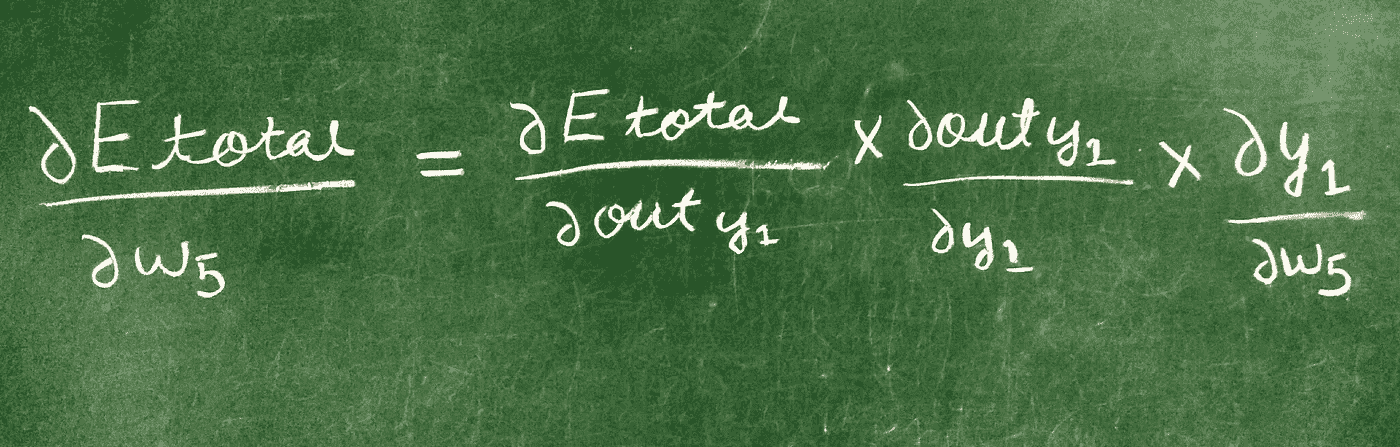 ∂E total / ∂w₅ = ∂E total / ∂out y₁ × ∂out y₁ / ∂y₁ × ∂y₁ / ∂w₅